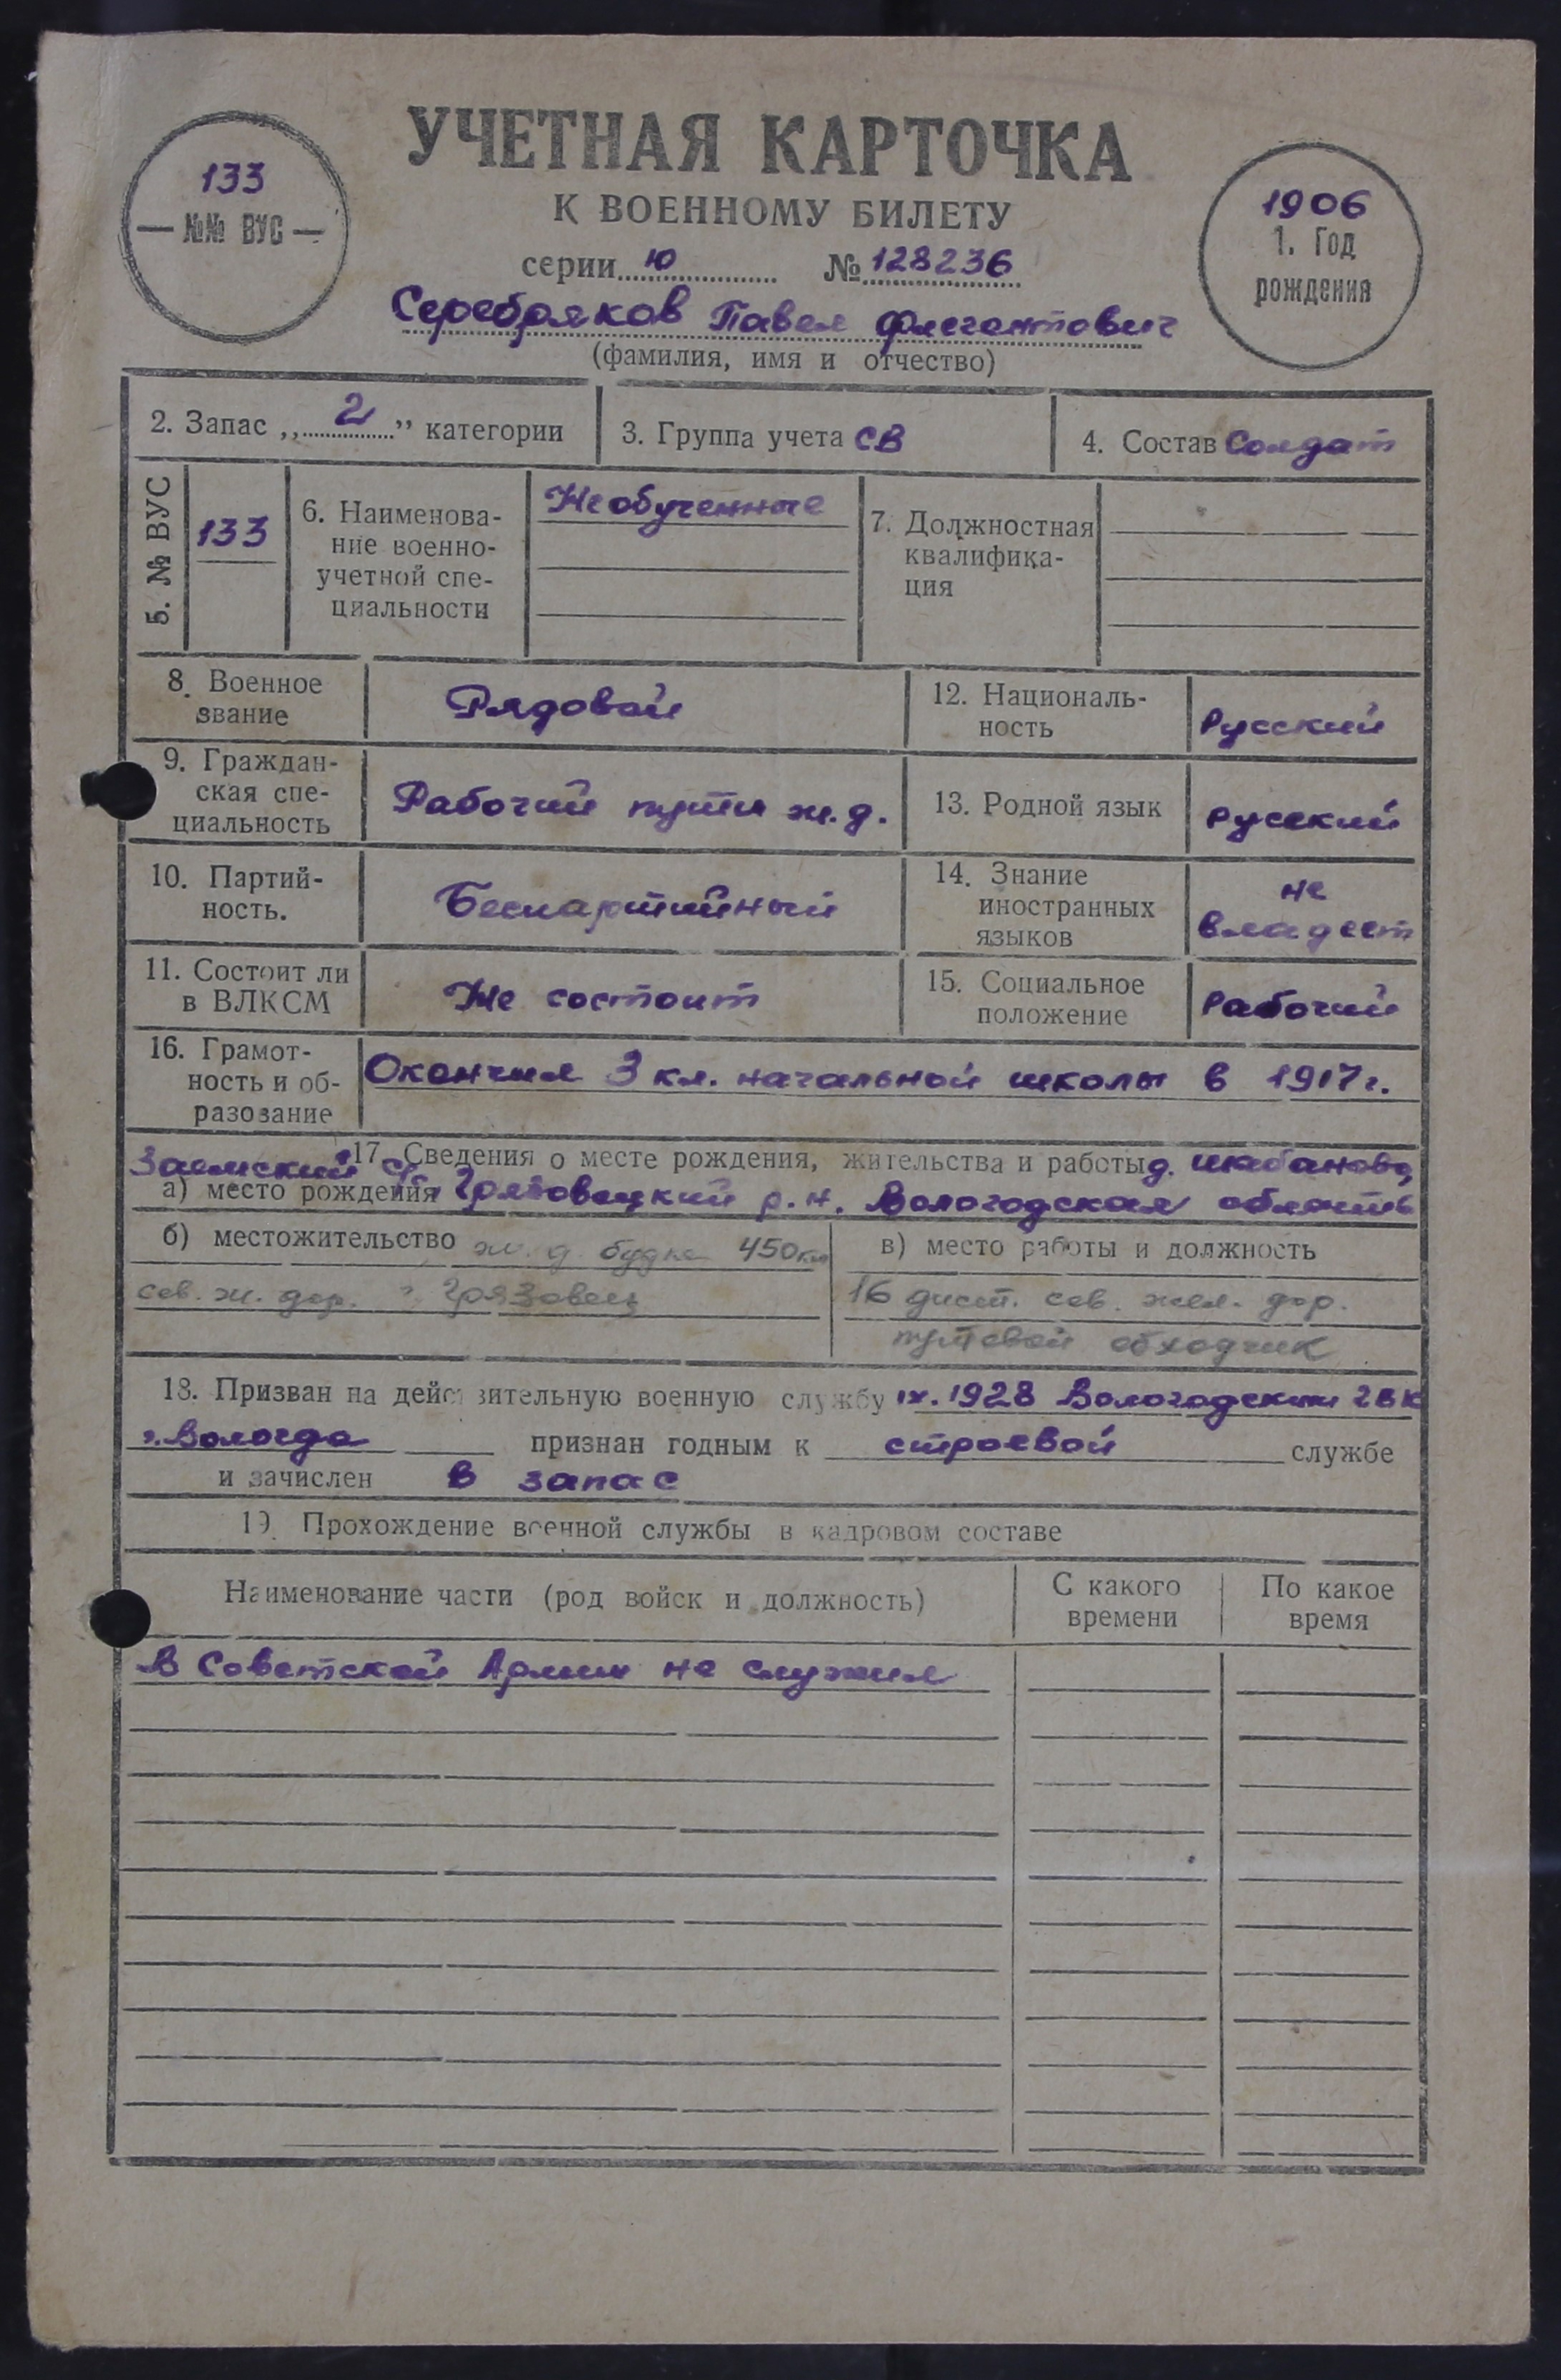 УЧЕТНАЯ КАРТОЧКА
К ВОЕННОМУ БИЛЕТУ
133
№№ ВУС
1906
1. Год
рождения
серии ю № 128236
Серебряков Павел Флегонтович
(фамилия, имя и отчество)
2. Запас „2” категории
3. Группа учета СВ
4. Состав Солдат
5. № ВУС
133
6. Наименова-
ние военно-
учетной спе-
циальности
Необученные
7. Должностная
квалифика-
ция
8. Военное
звание
Рядовой
12. Националь-
ность
Русский
9. Граждан-
ская спе-
циальность
Рабочий пути ж.д.
13. Родной язык
русский
10. Партий-
ность.
Беспартийный
14. Знание
иностранных
языков
не
владеет
11. Состоит ли
в ВЛКСМ
Не состоит
15. Социальное
положение
Рабочий
16. Грамот-
ность и об-
разование
Окончил 3 кл. начальной школы в 1917 г.
17. Сведения о месте рождения, жительства и работы
д. Шабаново,
Заемский с/с
а) место рождения Грязовецкий р.н. Вологодская область
б) местожительство ж.д. будка 450 км
сев. ж. дор. г. Грязовец
в) место работы и должность
16 дист. сев. жел. дор.
путевой обходчик
18. Призван на действительную военную службу IX. 1928 Вологодским ГВК
г. Вологда признан годным к строевой службе
и зачислен в запас
19. Прохождение военной службы в кадровом составе
Наименование части (род войск и должность)
С какого
времени
По какое
время
В Советской Армии не служил